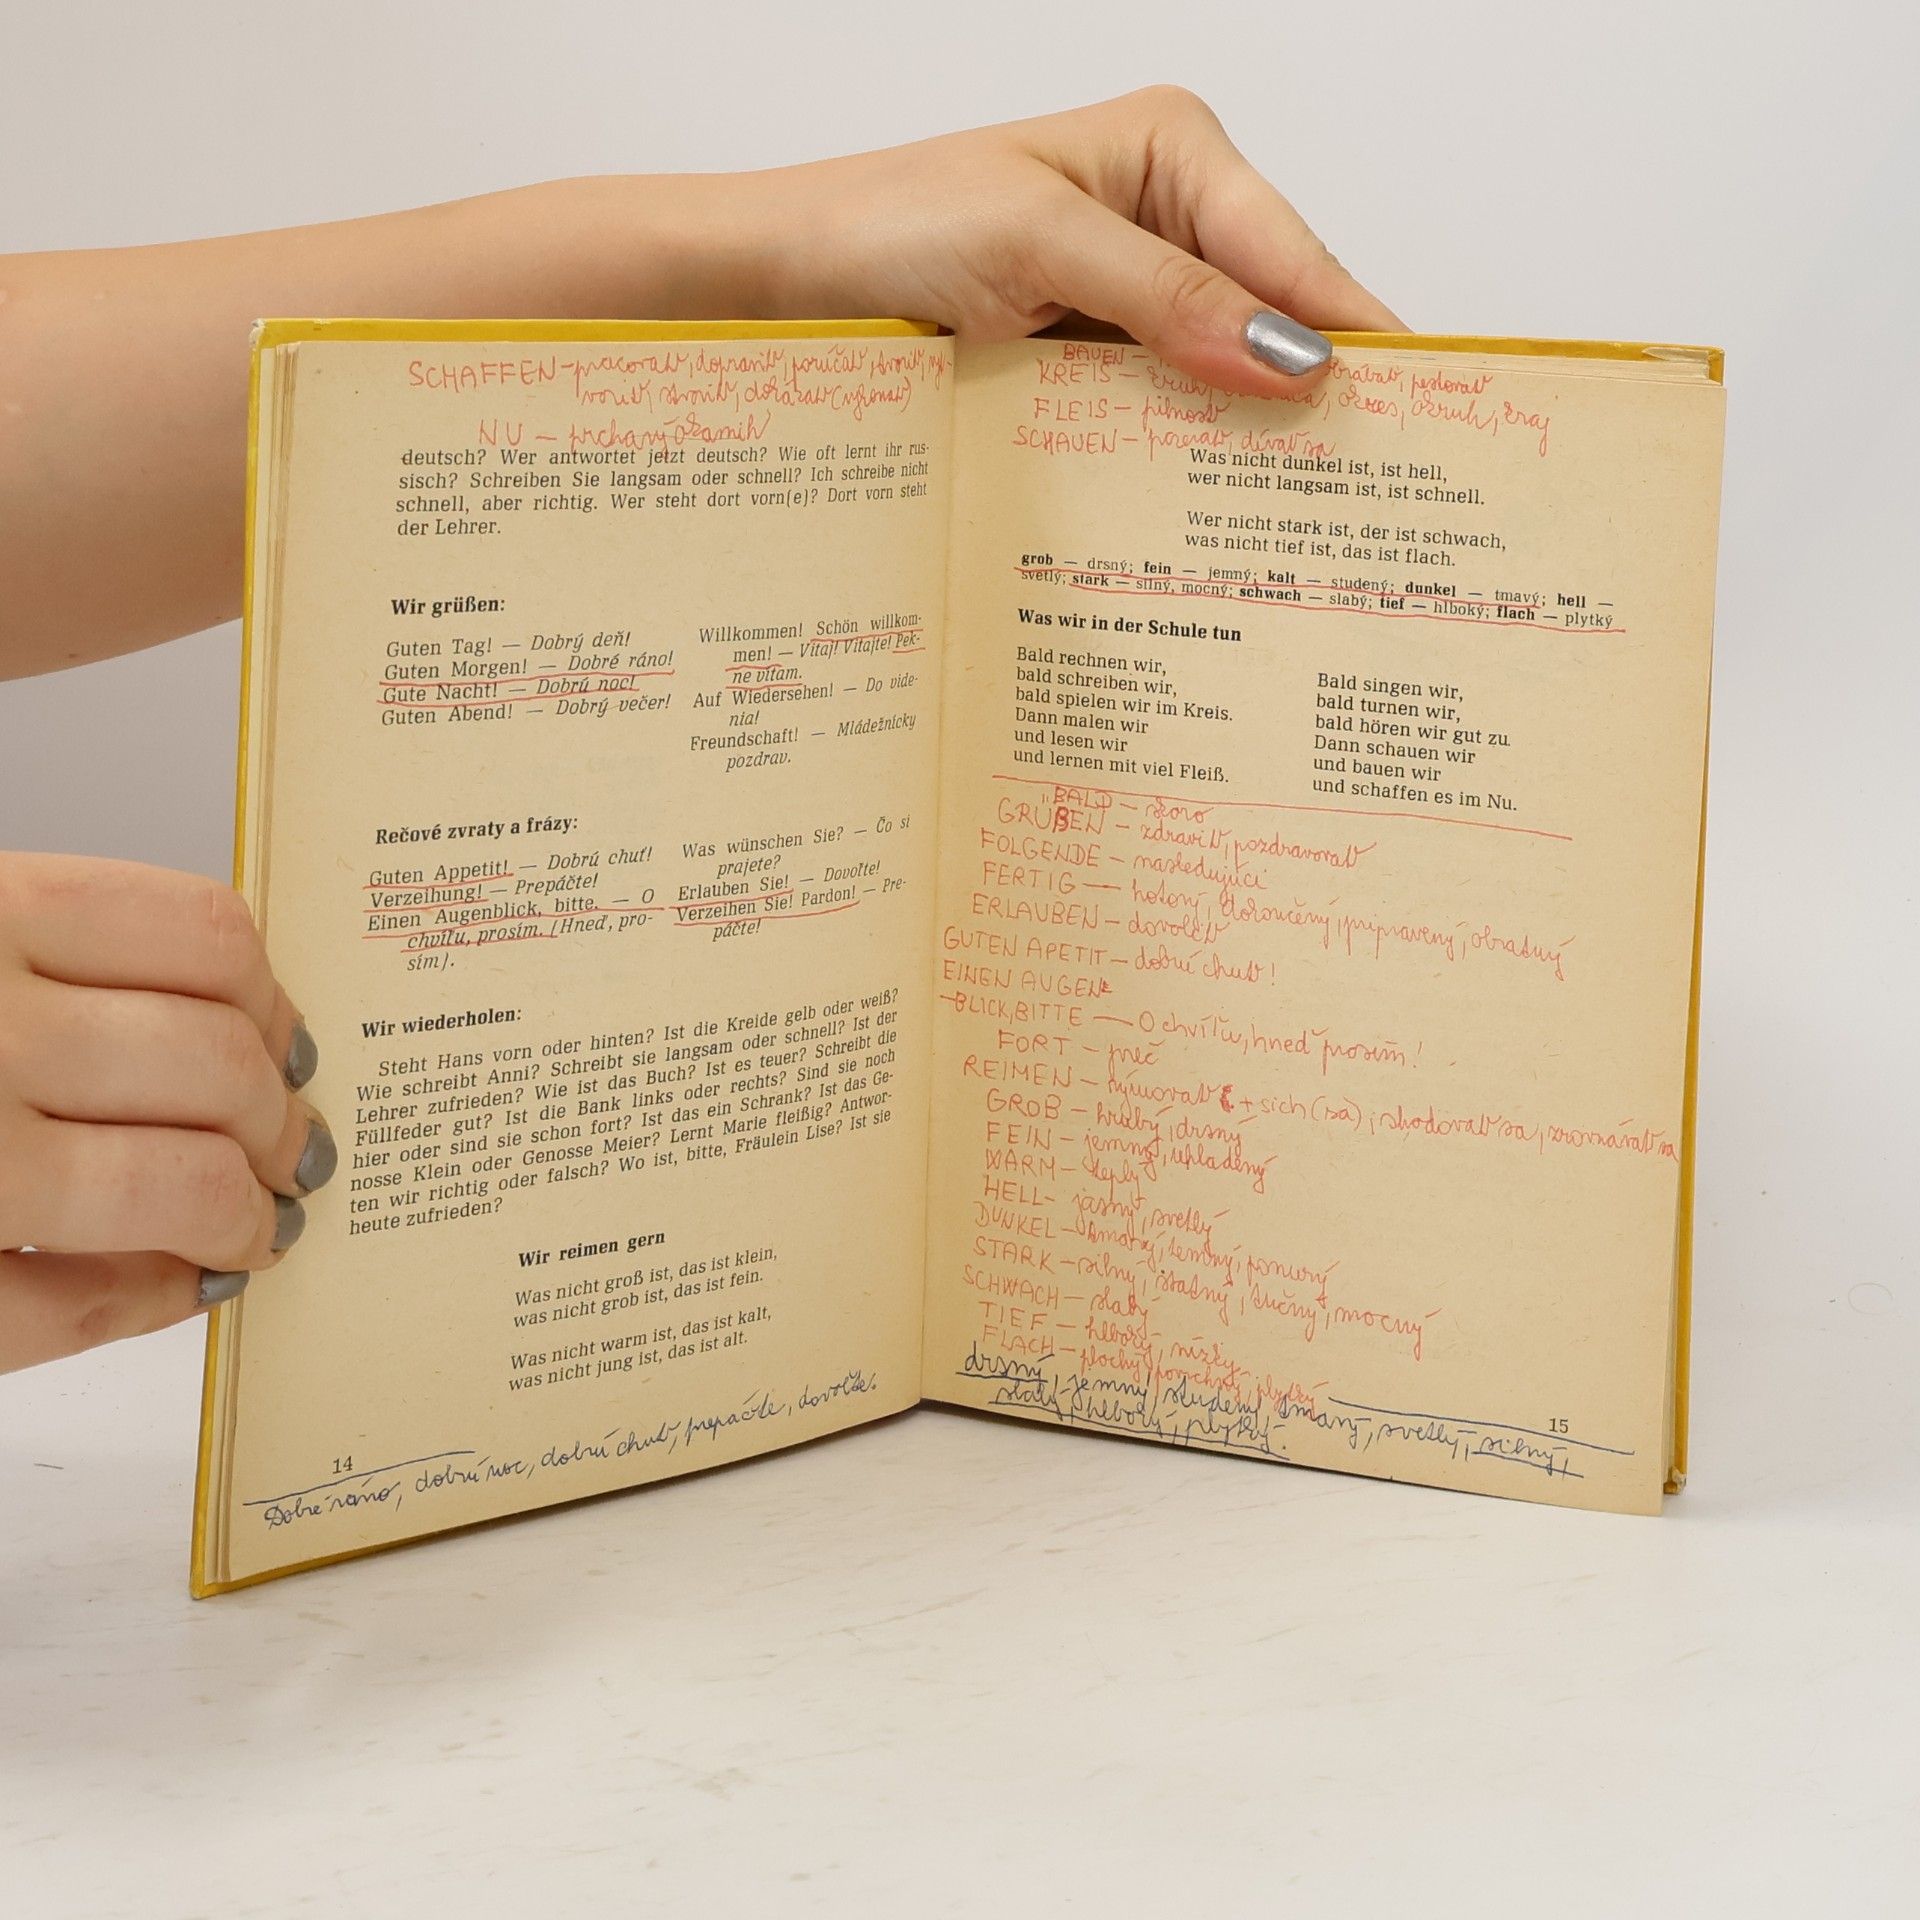 SCHAFFEN – pracovať, dopraviť, poručať, tvoriť, vy-
voriť, stroviť, dokázať (vykonať)
NU – prchavý okamih
deutsch? Wer antwortet jetzt deutsch? Wie oft lernt ihr rus-
sisch? Schreiben Sie langsam oder schnell? Ich schreibe nicht
schnell, aber richtig. Wer steht dort vorn(e)? Dort vorn steht
der Lehrer.
Wir grüßen:
Guten Tag! — Dobrý deň!
Guten Morgen! — Dobré ráno!
Gute Nacht! — Dobrú noc!
Guten Abend! — Dobrý večer!
Willkommen! Schön willkom-
men! — Vitaj! Vitajte! Pek-
ne vítam.
Auf Wiedersehen! — Do vide-
nia!
Freundschaft! — Mládežnícky
pozdrav.
Rečové zvraty a frázy:
Guten Appetit! — Dobrú chuť!
Verzeihung! — Prepáčte!
Einen Augenblick, bitte. — O
chvíľu, prosím. (Hneď, pro-
sím).
Was wünschen Sie? — Čo si
prajete?
Erlauben Sie! — Dovoľte!
Verzeihen Sie! Pardon! — Pre-
páčte!
Wir wiederholen:
Steht Hans vorn oder hinten? Ist die Kreide gelb oder weiß?
Wie schreibt Anni? Schreibt sie langsam oder schnell? Ist der
Lehrer zufrieden? Wie ist das Buch? Ist es teuer? Schreibt die
Füllfeder gut? Ist die Bank links oder rechts? Sind sie noch
hier oder sind sie schon fort? Ist das ein Schrank? Ist das Ge-
nosse Klein oder Genosse Meier? Lernt Marie fleißig? Antwor-
ten wir richtig oder falsch? Wo ist, bitte, Fräulein Lise? Ist sie
heute zufrieden?
Wir reimen gern
Was nicht groß ist, das ist klein,
was nicht grob ist, das ist fein.
Was nicht warm ist, das ist kalt,
was nicht jung ist, das ist alt.
14
Dobré ráno, dobrú noc, dobrú chuť, prepáčte, dovoľte.
BAUEN – obrábať, pestovať
KREIS – kruh, okres, okruh, kraj
FLEIS – pilnosť
SCHAUEN – pozerať, dívať sa
Was nicht dunkel ist, ist hell,
wer nicht langsam ist, ist schnell.
Wer nicht stark ist, der ist schwach,
was nicht tief ist, das ist flach.
grob — drsný; fein — jemný; kalt — studený; dunkel — tmavý; hell —
svetlý; stark — silný, mocný; schwach — slabý; tief — hlboký; flach — plytký
Was wir in der Schule tun
Bald rechnen wir,
bald schreiben wir,
bald spielen wir im Kreis.
Dann malen wir
und lesen wir
und lernen mit viel Fleiß.
Bald singen wir,
bald turnen wir,
bald hören wir gut zu.
Dann schauen wir
und bauen wir
und schaffen es im Nu.
BALD – skoro
GRÜßEN – zdraviť, pozdravovať
FOLGENDE – nasledujúci
FERTIG — hotový, dokončený, pripravený, obratný
ERLAUBEN – dovoliť
GUTEN APETIT – dobrú chuť!
EINEN AUGEN
–BLICK, BITTE — O chvíľu, hneď prosím!
FORT – preč
REIMEN – rýmovať + sich (sa), shodovať sa, zrovnávať sa
GROB – hrubý, drsný
FEIN – jemný, uhladený
WARM – teplý
HELL – jasný, svetlý
DUNKEL – tmavý, temný, ponurý
STARK – silný, statný, tučný, mocný
SCHWACH – slabý
TIEF – hlboký, nízky
FLACH – plochý, povrchný, plytký
drsný, jemný, studený, tmavý, svetlý, silný,
slabý, hlboký, plytký.
15